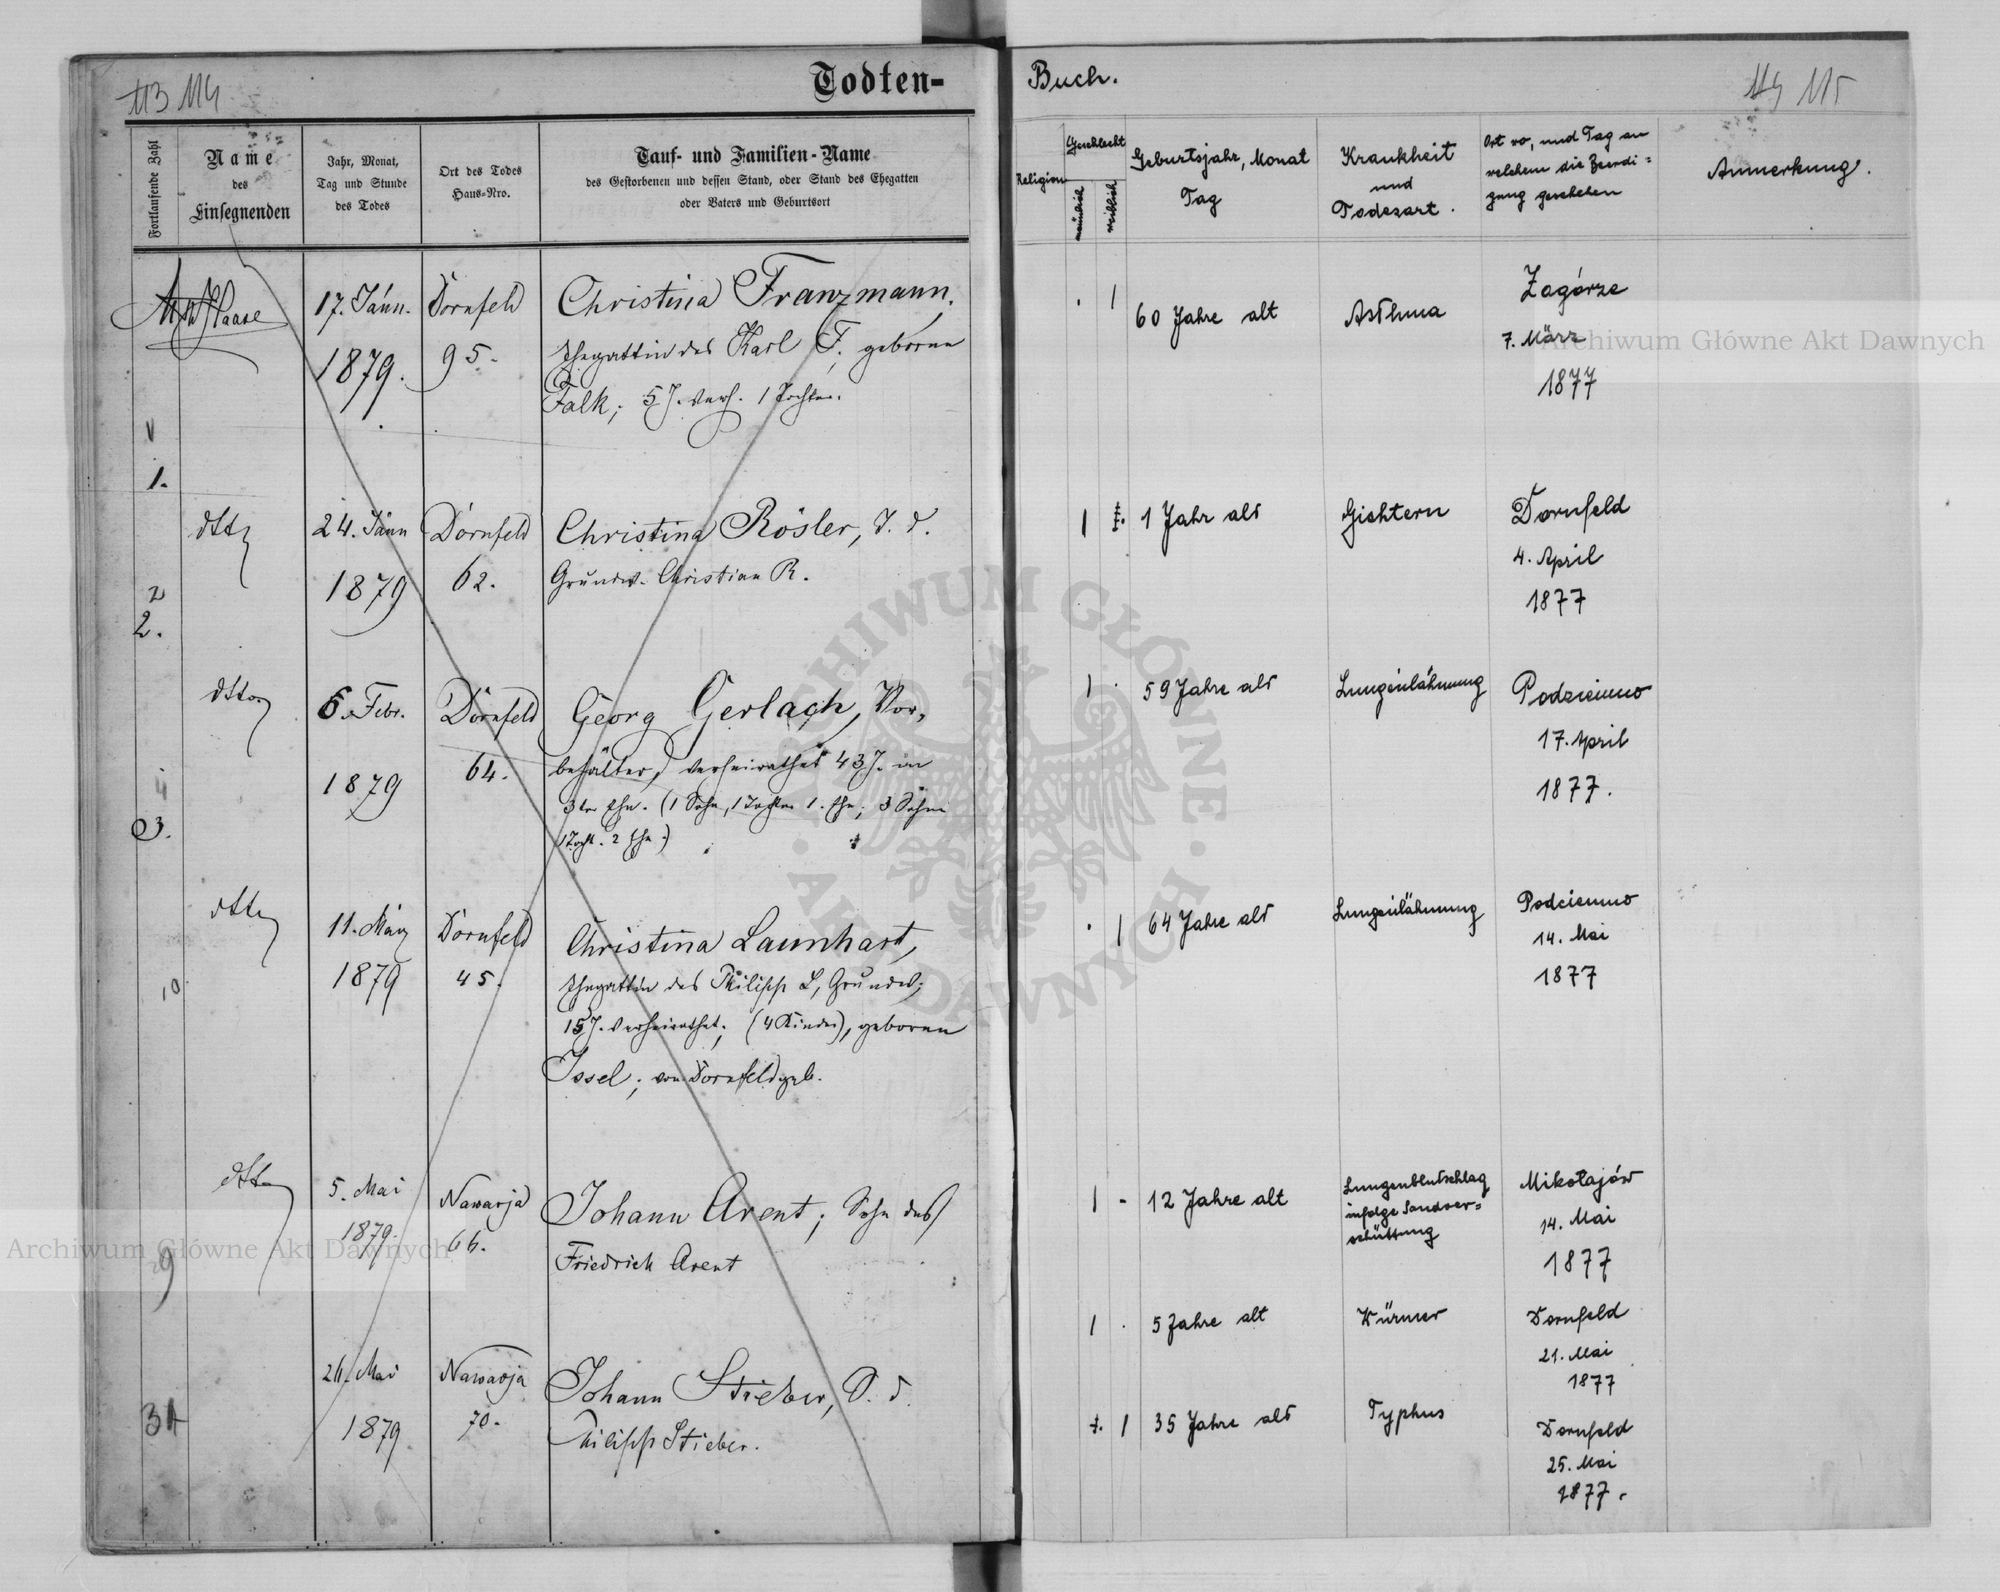 113 114
Todten=
Fortlaufende Zahl
Name
des
Einsegnenden
Jahr, Monat,
Tag und Stunde
des Todes
Ort des Todes
Haus=Nro.
Tauf= und Familien=Name
des Gestorbenen und dessen Stand, oder Stand des Ehegatten
oder Vaters und Geburtsort
Haase
17. Jänn.
1879.
Dornfeld
95.
Christina Franzmann,
Ehegattin des Karl F. geborne
Falk; 5 J. verh. 1 Tochter.
1.
dtto
24. Jänn
1879
Dornfeld
62.
Christina Rösler, T. d.
Grundw. Christian R.
2
2.
dtto
6. Febr.
1879
Dornfeld
64.
Georg Gerlach, Vor=
behälter, verheirathet 43 J. in
3ter Ehe. (1 Sohn, 1 Tochter 1. Ehe; 3 Söhne
1 Tocht. 2 Ehe.)
4
3.
dtto
11. März
1879
Dornfeld
45.
Christina Launhart,
Ehegattin des Philipp L, Grundw.;
15 J. verheirathet; (4 Kinder), geborne
Issel; von Dornfeld geb.
10
dtto
5. Mai
1879.
Nawarja
66.
Johann Arent; Sohn des
Friedrich Arent
9
26. Mai
1879
Nawarja
70.
Johann Stieber, S. d.
Philipp Stieber.
Buch.
114 115
Religion
Geschlecht
männlich
weiblich
Geburtsjahr, Monat
Tag
Krankheit
und
Todesart.
Ort wo, und Tag an
welchem die Beerdi=
gung geschehen
Anmerkung.
1
60 Jahre alt
Asthma
Zagórze
7. März
1877
1
1 Jahr alt
Gichtern
Dornfeld
4. April
1877
1
59 Jahre alt
Lungenlähmung
17. April
1877.
1
64 Jahre alt
Lungenlähmung
14. Mai
1877
1 -
12 Jahre alt
Lungenblutschlag
infolge Sandver=
schüttung
Mikołajów
14. Mai
1877
1
5 Jahre alt
Würmer
Dornfeld
21. Mai
1877
1
35 Jahre alt
Typhus
Dornfeld
25. Mai
1877.
Archiwum Główne Akt Dawnych
ARCHIWUM GŁÓWNE · AKT DAWNYCH ·
Archiwum Główne Akt Dawnych